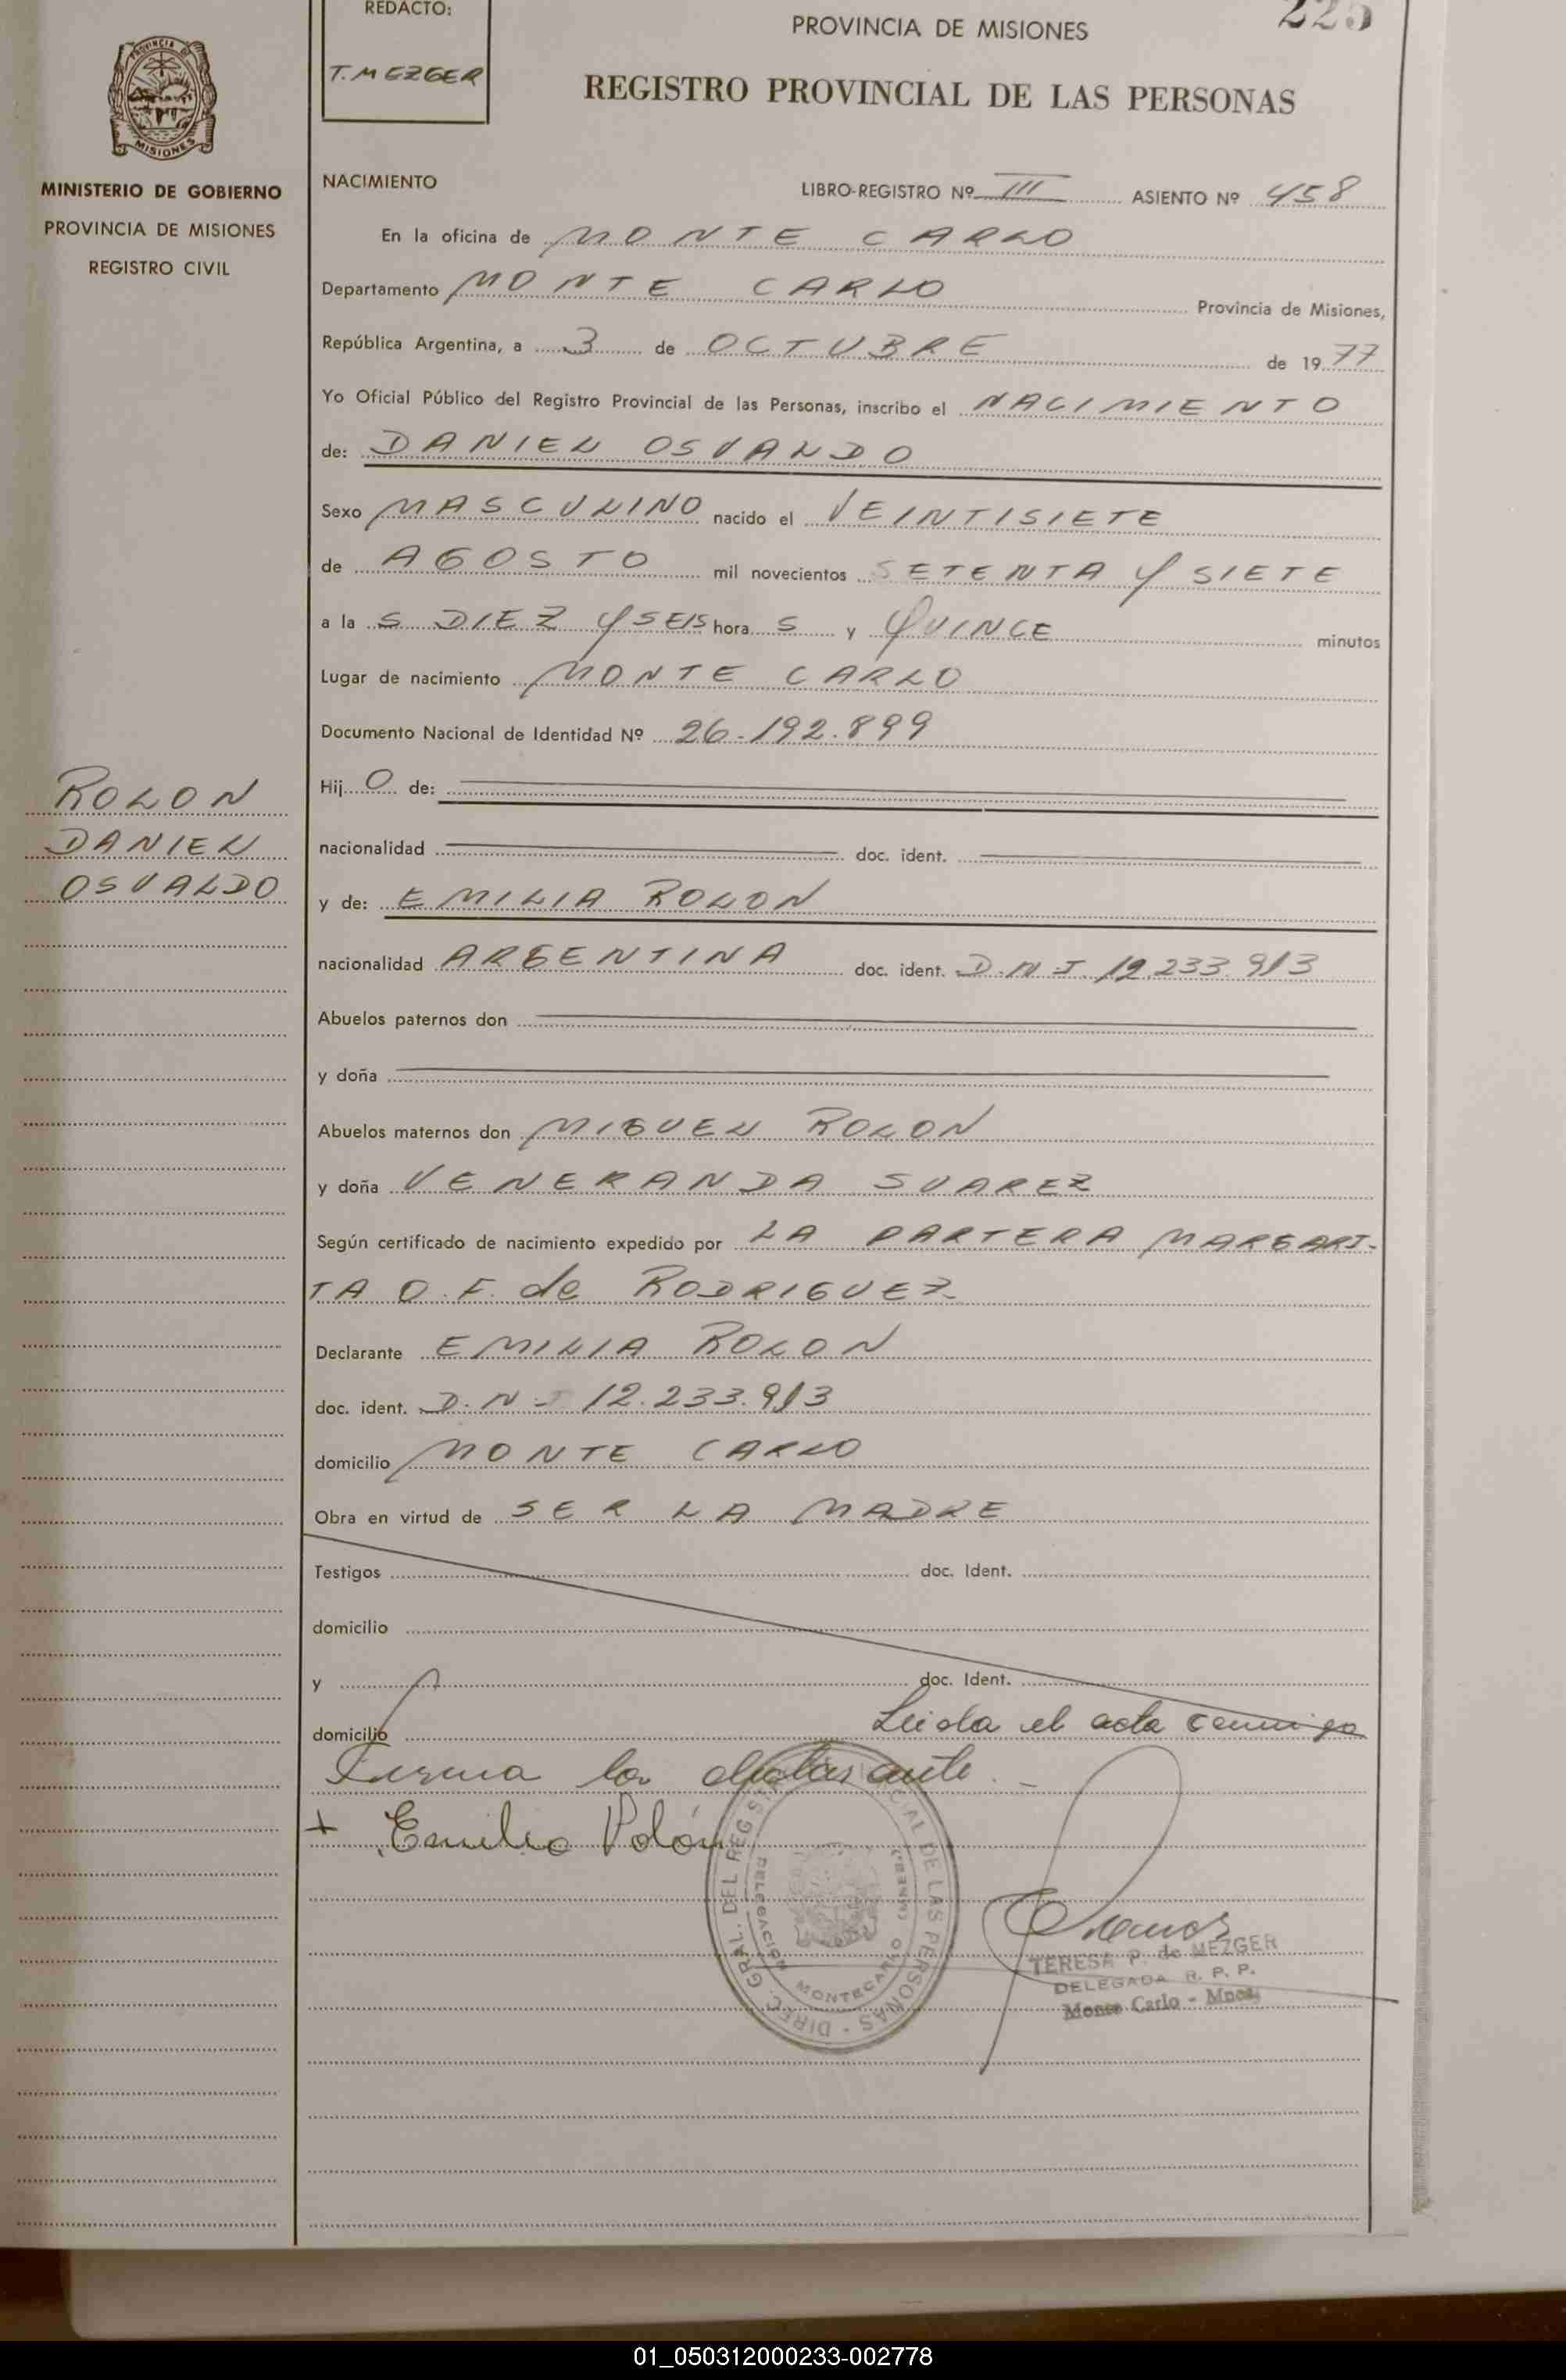 REDACTO:
T. MEZGER
225
PROVINCIA DE MISIONES
REGISTRO PROVINCIAL DE LAS PERSONAS
MISIONES
MINISTERIO DE GOBIERNO
PROVINCIA DE MISIONES
REGISTRO CIVIL
NACIMIENTO
LIBRO-REGISTRO Nº III ASIENTO Nº 458
En la oficina de MONTE CARLO
Departamento MONTE CARLO Provincia de Misiones,
República Argentina, a 3 de OCTUBRE de 1977
Yo Oficial Público del Registro Provincial de las Personas, inscribo el NACIMIENTO
de: DANIEL OSVALDO
Sexo MASCULINO nacido el VEINTISIETE
de AGOSTO mil novecientos SETENTA Y SIETE
a la S DIEZ Y SEIS hora S y QUINCE minutos
Lugar de nacimiento MONTE CARLO
Documento Nacional de Identidad Nº 26-192.899
Hij O de:
ROLON
DANIEL
OSVALDO
nacionalidad doc. ident.
y de: EMILIA ROLON
nacionalidad ARGENTINA doc. ident. D.N.I. 12.233.913
Abuelos paternos don
y doña
Abuelos maternos don MIGUEL ROLON
y doña VENERANDA SUAREZ
Según certificado de nacimiento expedido por LA PARTERA MARGARI-
TA O. F. de RODRIGUEZ
Declarante EMILIA ROLON
doc. ident. D.N.I 12.233.913
domicilio MONTE CARLO
Obra en virtud de SER LA MADRE
Testigos doc. Ident.
domicilio
y doc. Ident.
domicilio Leida el acta conmigo
Firma la declarante.-
+ Emilia Rolón
DIREC. GRAL. DEL REGISTRO PROVINCIAL DE LAS PERSONAS
DELEGACION MONTECARLO (MNES.)
TERESA P. de MEZGER
DELEGADA R. P. P.
Monte Carlo - Mnes.
01_050312000233-002778